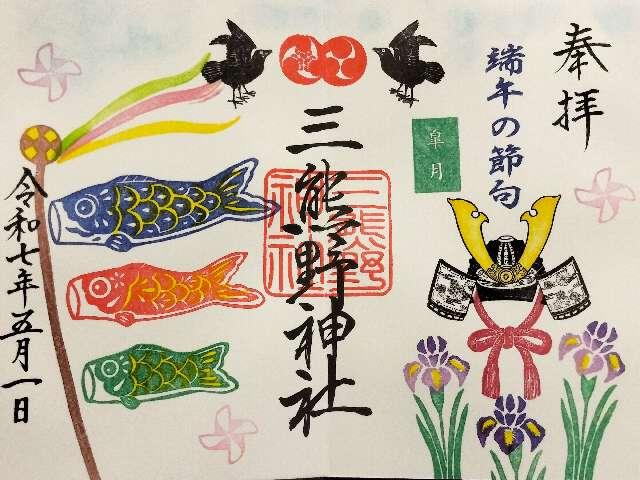 奉拝
端午の節句
皐月
三熊野神社
三熊野神社
令和七年五月一日